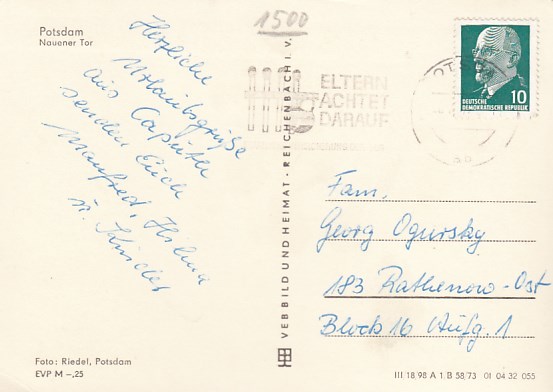 Potsdam
Nauener Tor
1500
Herzliche
Urlaubsgrüße
aus Caputh
senden Euch
Manfred, Helma
u. Kinder
ELTERN
ACHTET
DARAUF
DEUTSCHE
DEMOKRATISCHE REPUBLIK
10
VEB BILD UND HEIMAT · REICHENBACH I. V.
Fam.
Georg Ogursky
183 Rathenow-Ost
Block 16 Aufg. 1
Foto: Riedel, Potsdam
EVP M –,25
III 18 98 A 1. B 58/73 01 04 32 055